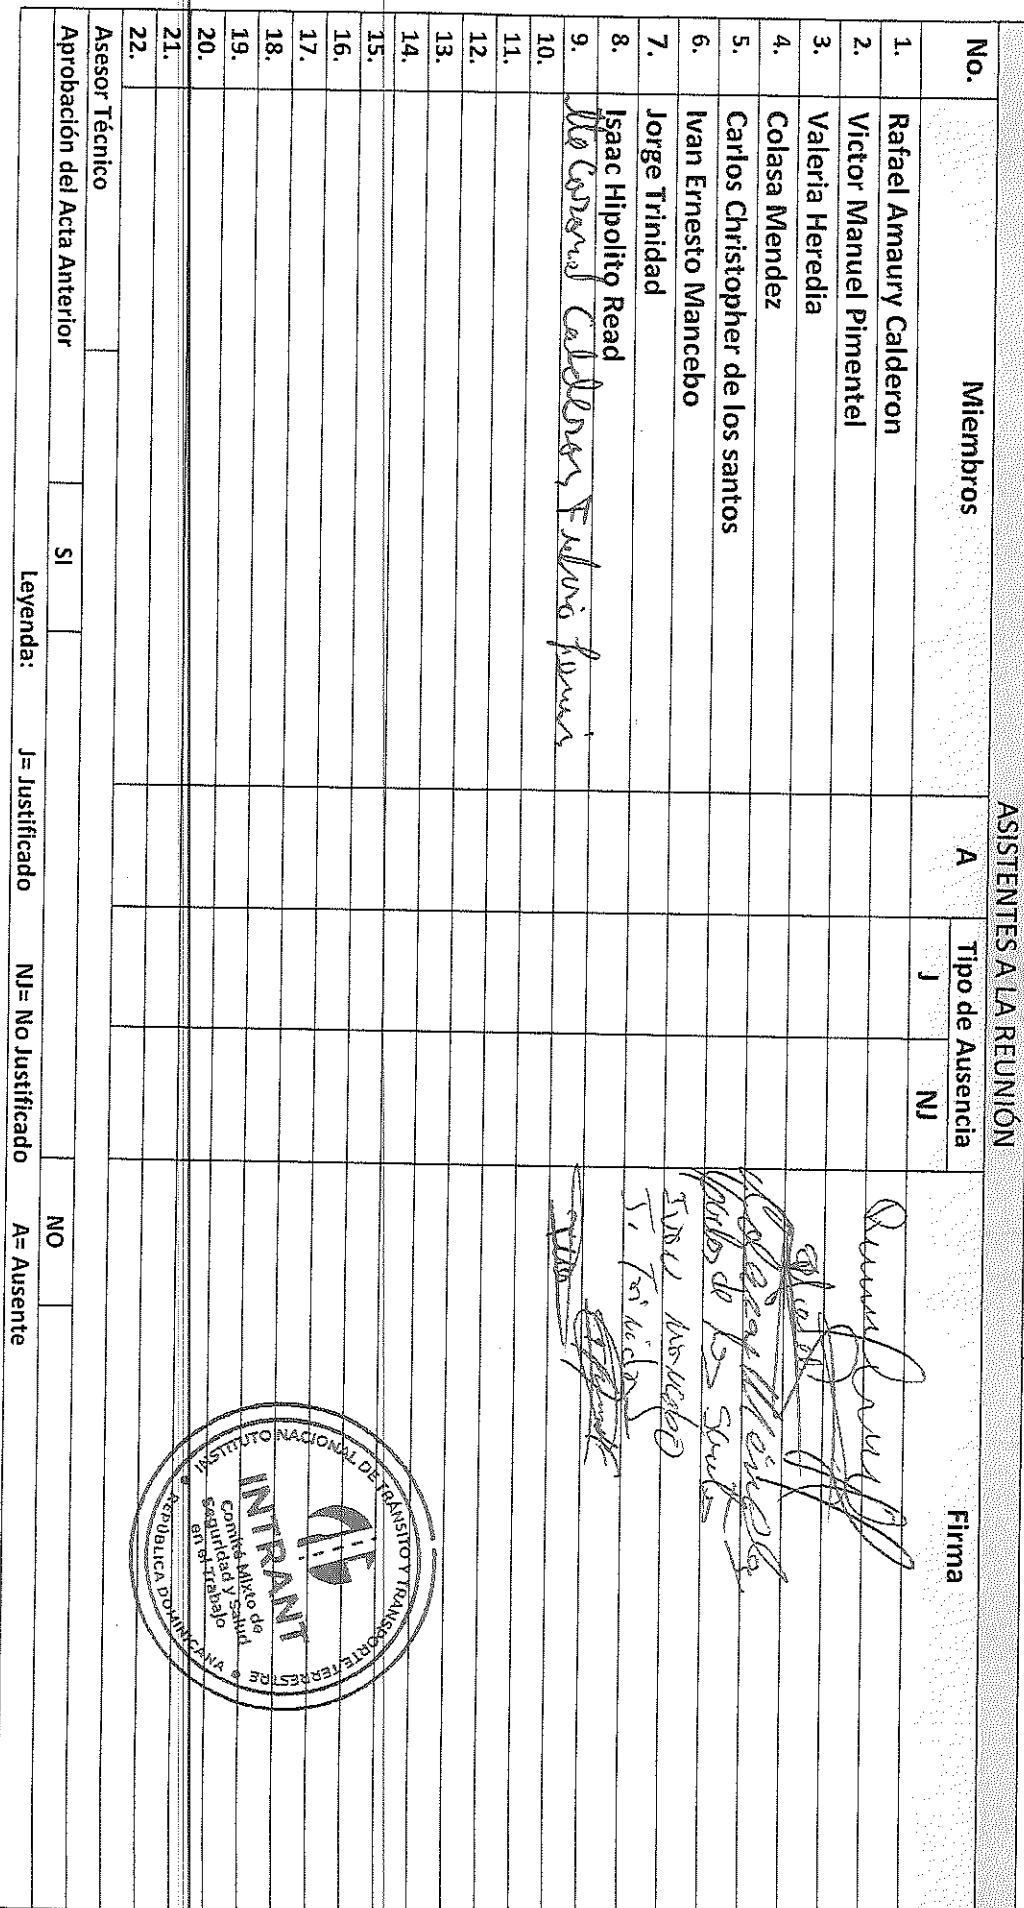 ASISTENTES A LA REUNIÓN
No. Miembros A Tipo de Ausencia Firma
J NJ
1. Rafael Amaury Calderon
2. Victor Manuel Pimentel
3. Valeria Heredia
4. Colasa Mendez
5. Carlos Christopher de los santos
6. Ivan Ernesto Mancebo Ivan Mancebo
7. Jorge Trinidad J. Trinidad
8. Isaac Hipolito Read
9. Calderon
10.
11.
12.
13.
14.
15.
16.
17.
18.
19.
20.
21.
22.
Asesor Técnico
Aprobación del Acta Anterior SI NO
Leyenda: J= Justificado NJ= No Justificado A= Ausente
INSTITUTO NACIONAL DE TRÁNSITO Y TRANSPORTE TERRESTRE
INTRANT
Comité Mixto de
Seguridad y Salud
en el Trabajo
REPÚBLICA DOMINICANA